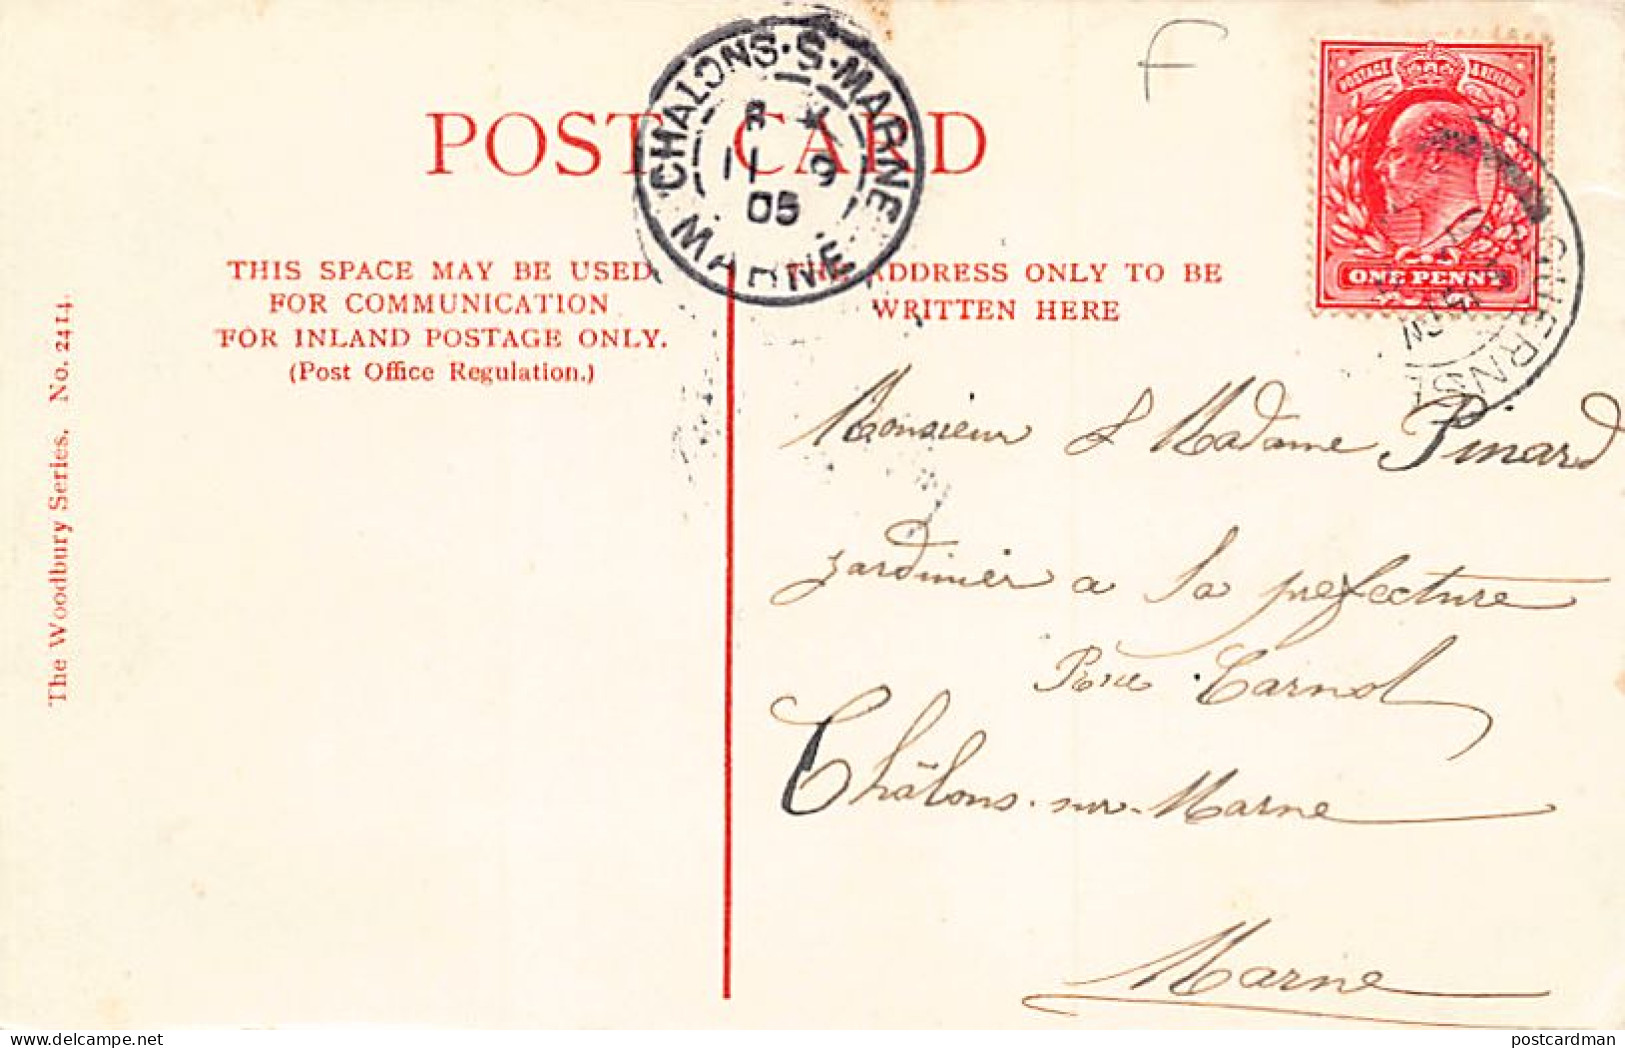 F
POSTAGE & REVENUE
ONE PENNY
GUERNS
CHALONS-S-MARNE
11 9
05
MARNE
POST CARD
THIS SPACE MAY BE USED
FOR COMMUNICATION
FOR INLAND POSTAGE ONLY.
(Post Office Regulation.)
THE ADDRESS ONLY TO BE
WRITTEN HERE
The Woodbury Series. No. 2414.
Monsieur & Madame Pinard
jardinier a la prefecture
Rue Carnot
Châlons-sur-Marne
Marne
postcardman